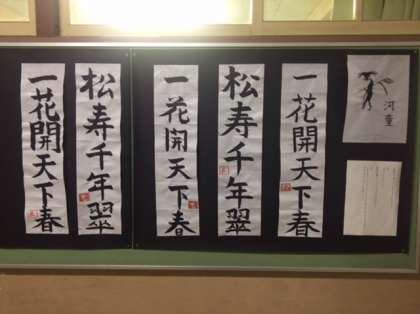 河童
一花開天下春
松寿千年翠
一花開天下春
松寿千年翠
一花開天下春